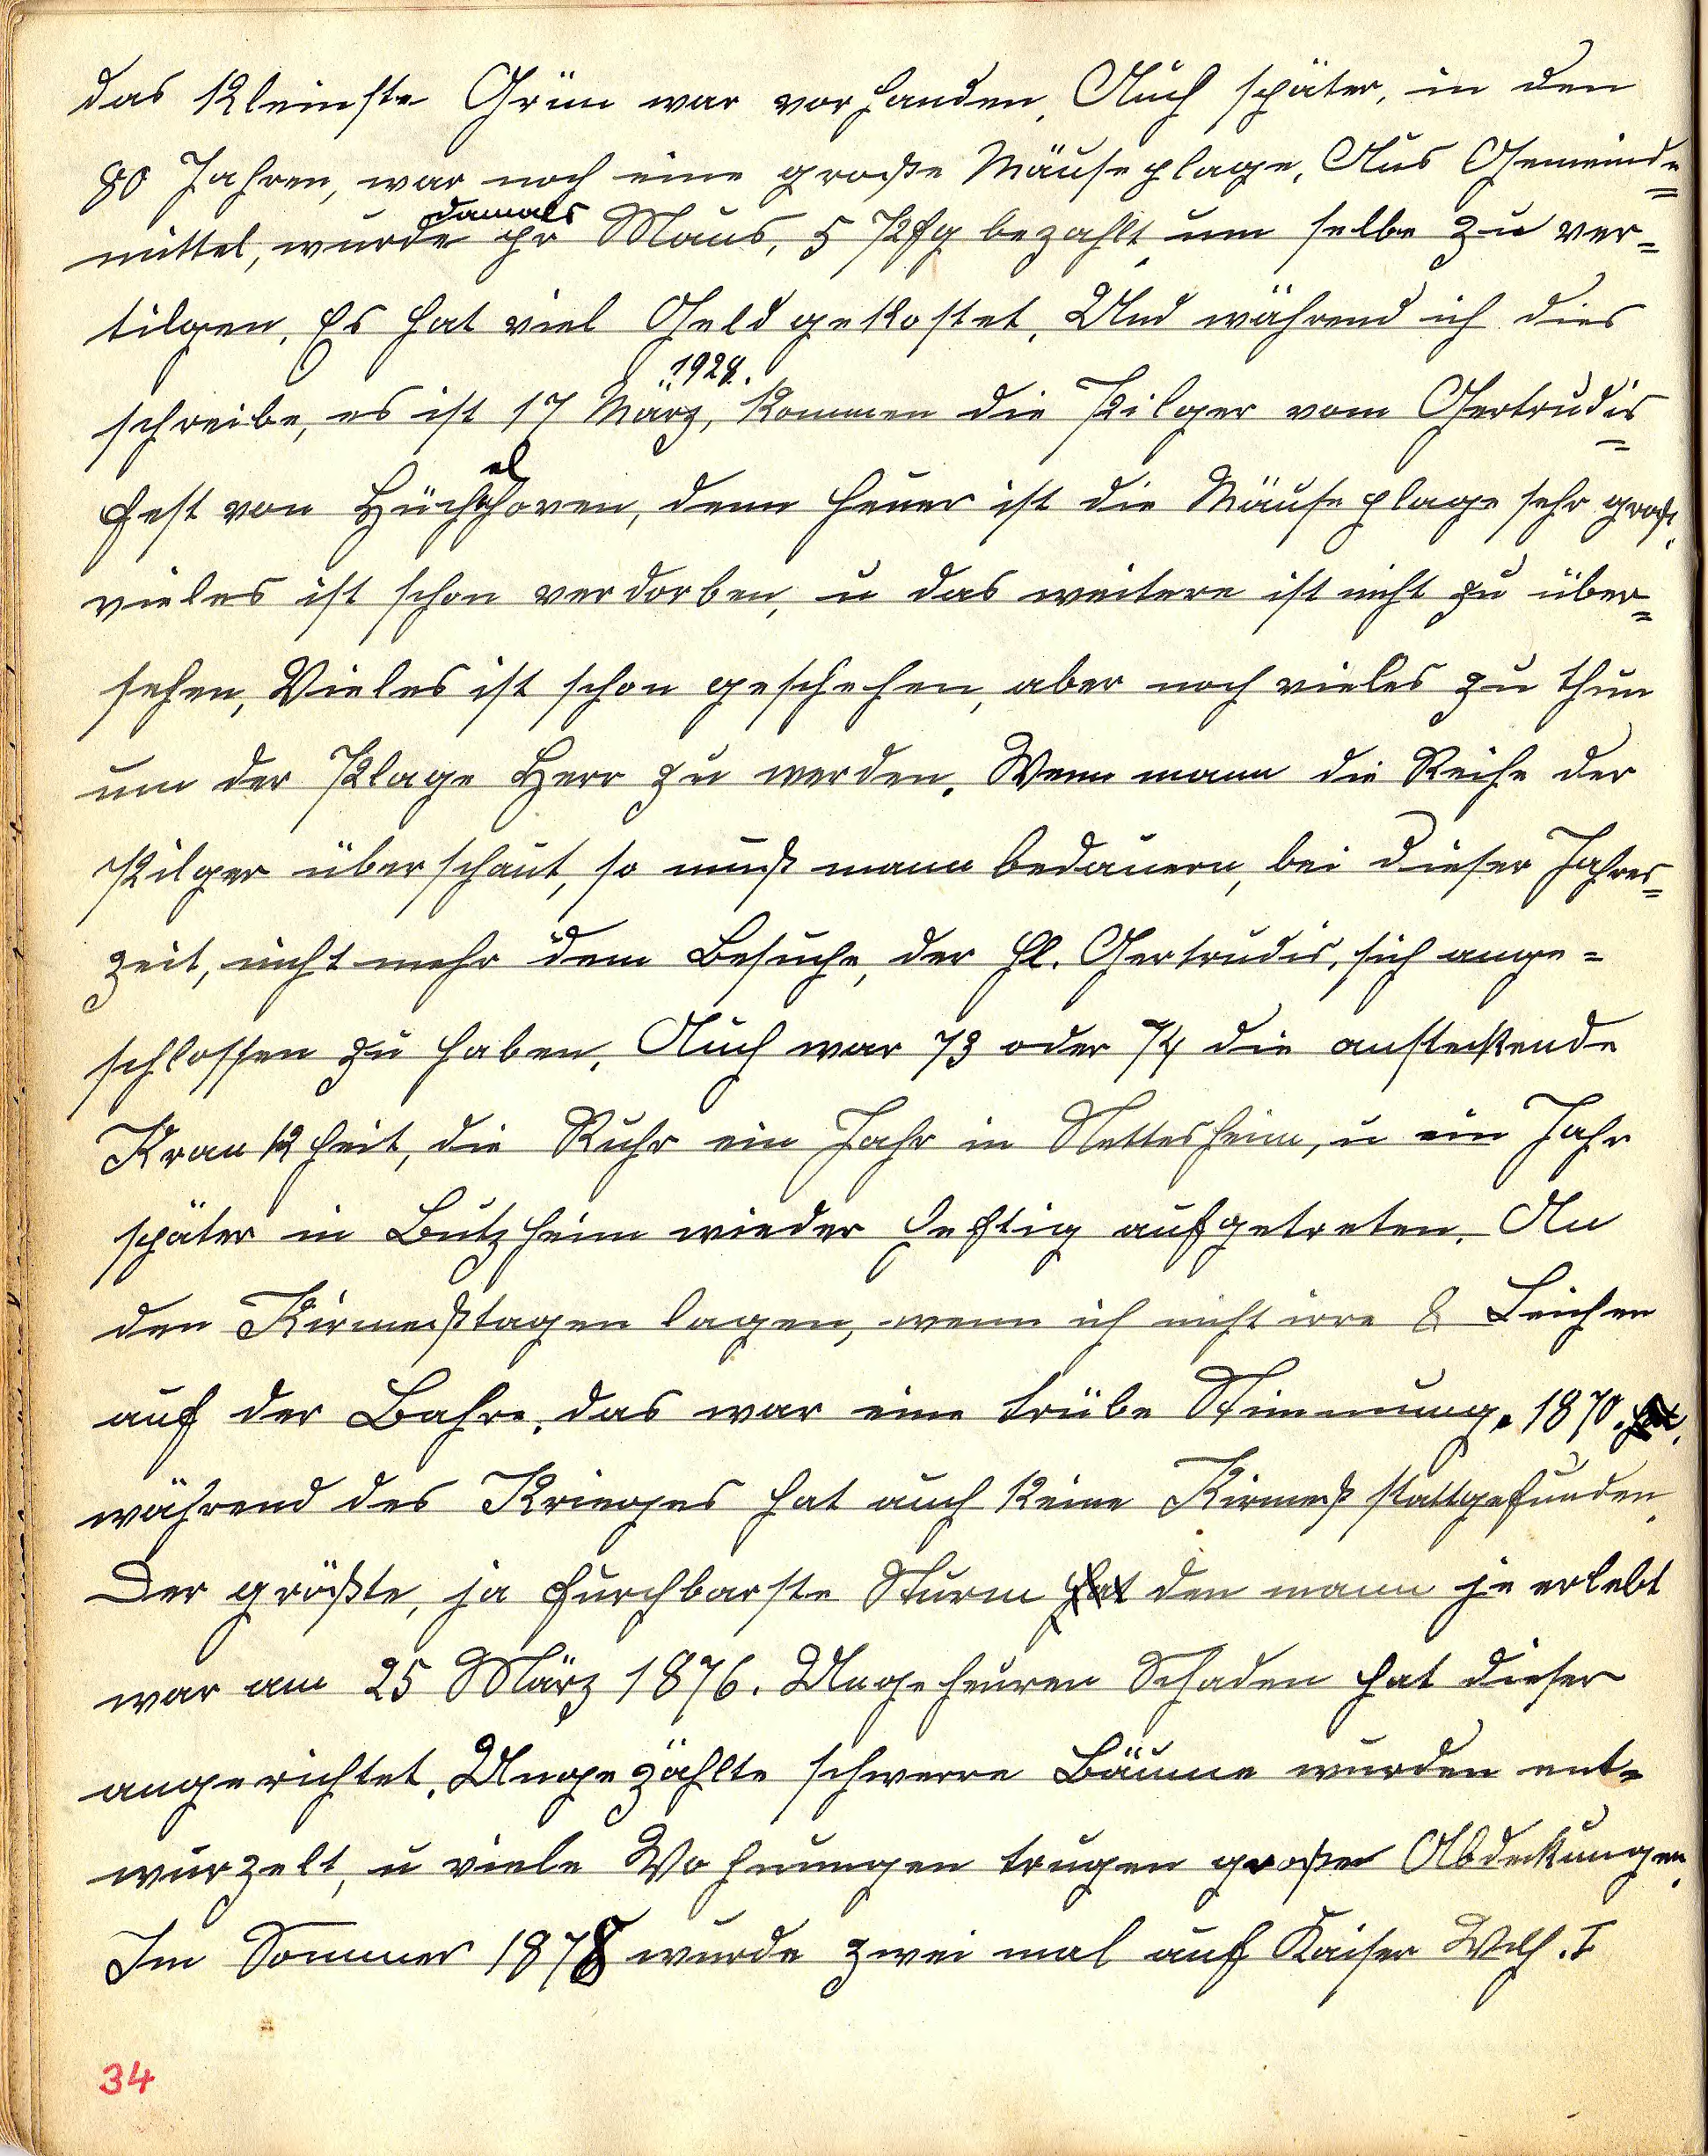 das kleinste Grün war vorhanden, Auch später, in den
80 Jahren, war noch eine große Mäuseplage. Aus Gemeinde=
damals
mittel, wurde pr Maus, 5 Pfg bezahlt um selbe zu ver=
tilgen. Es hat viel Geld gekostet. Und während ich dies
1928.
schreibe, es ist 17 März, kommen die Pilger vom Gertrudis=
el
fest von Hüchhoven, denn heuer ist die Mäuseplage sehr groß.
vieles ist schon verdorben, u das weitere ist nicht zu über=
sehen, Vieles ist schon geschehen, aber noch vieles zu thun
um der Plage Herr zu werden. Wenn mann die Reihe der
Pilger überschaut, so muß mann bedauern, bei dieser Jahres=
zeit, nicht mehr dem Besuche, der hl. Gertrudis, sich ange=
schlossen zu haben. Auch war 73 oder 74 die ansteckende
Krankheit, die Ruhr ein Jahr in Nettesheim, u ein Jahr
später in Butzheim wieder heftig aufgetreten. An
den Kirmeßtagen lagen, wenn ich nicht irre 8 Leichen
auf der Bahre, das war eine trübe Stimmung. 1870.
während des Krieges hat auch keine Kirmeß stattgefunden.
Der größte, ja furchbarste Sturm hat den mann je erlebt
war am 25 März 1876. Ungeheuren Schaden hat dieser
angerichtet. Ungezählte schwere Bäume wurden ent=
wurzelt, u viele Wohnungen trugen große Abdeckungen.
Im Sommer 1878 wurde zwei mal auf Kaiser Wilh. I
34